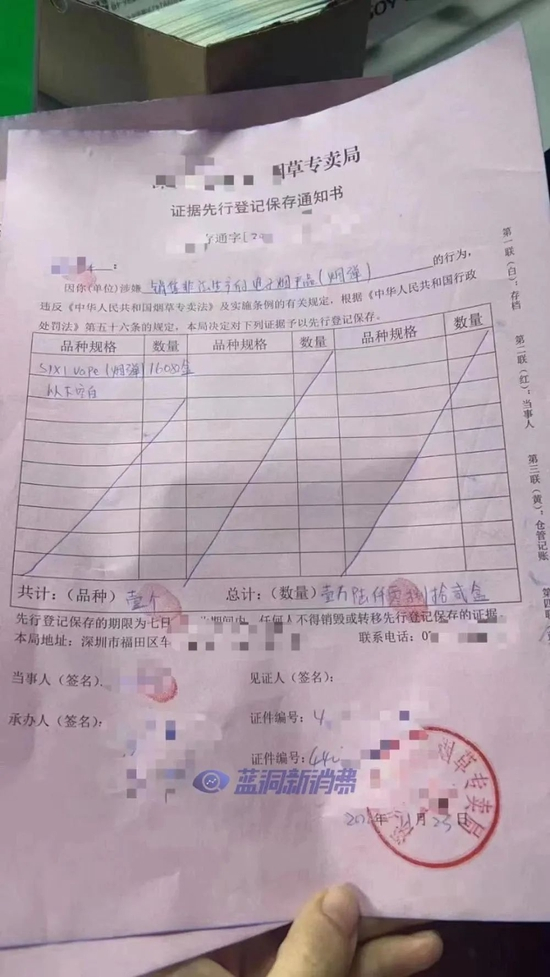 烟草专卖局
证据先行登记保存通知书
通字[2
因你(单位)涉嫌 销售非法生产的电子烟产品(烟弹) 的行为,
违反《中华人民共和国烟草专卖法》及实施条例的有关规定，根据《中华人民共和国行政
处罚法》第五十六条的规定，本局决定对下列证据予以先行登记保存。
品种规格 数量 品种规格 数量 品种规格 数量
(烟弹)
以下空白
共计：(品种) 壹个 总计：(数量) 壹万陆仟零捌拾贰盒
先行登记保存的期限为七日 此期间内，任何人不得销毁或转移先行登记保存的证据
本局地址：深圳市福田区车 联系电话：0
当事人（签名） 见证人（签名）：
承办人（签名）： 证件编号：
证件编号：
蓝洞新消费
年11月23日
草专卖局
第一联（白）：存档
第二联（红）：当事人
第三联（黄）：仓管记账
第四联